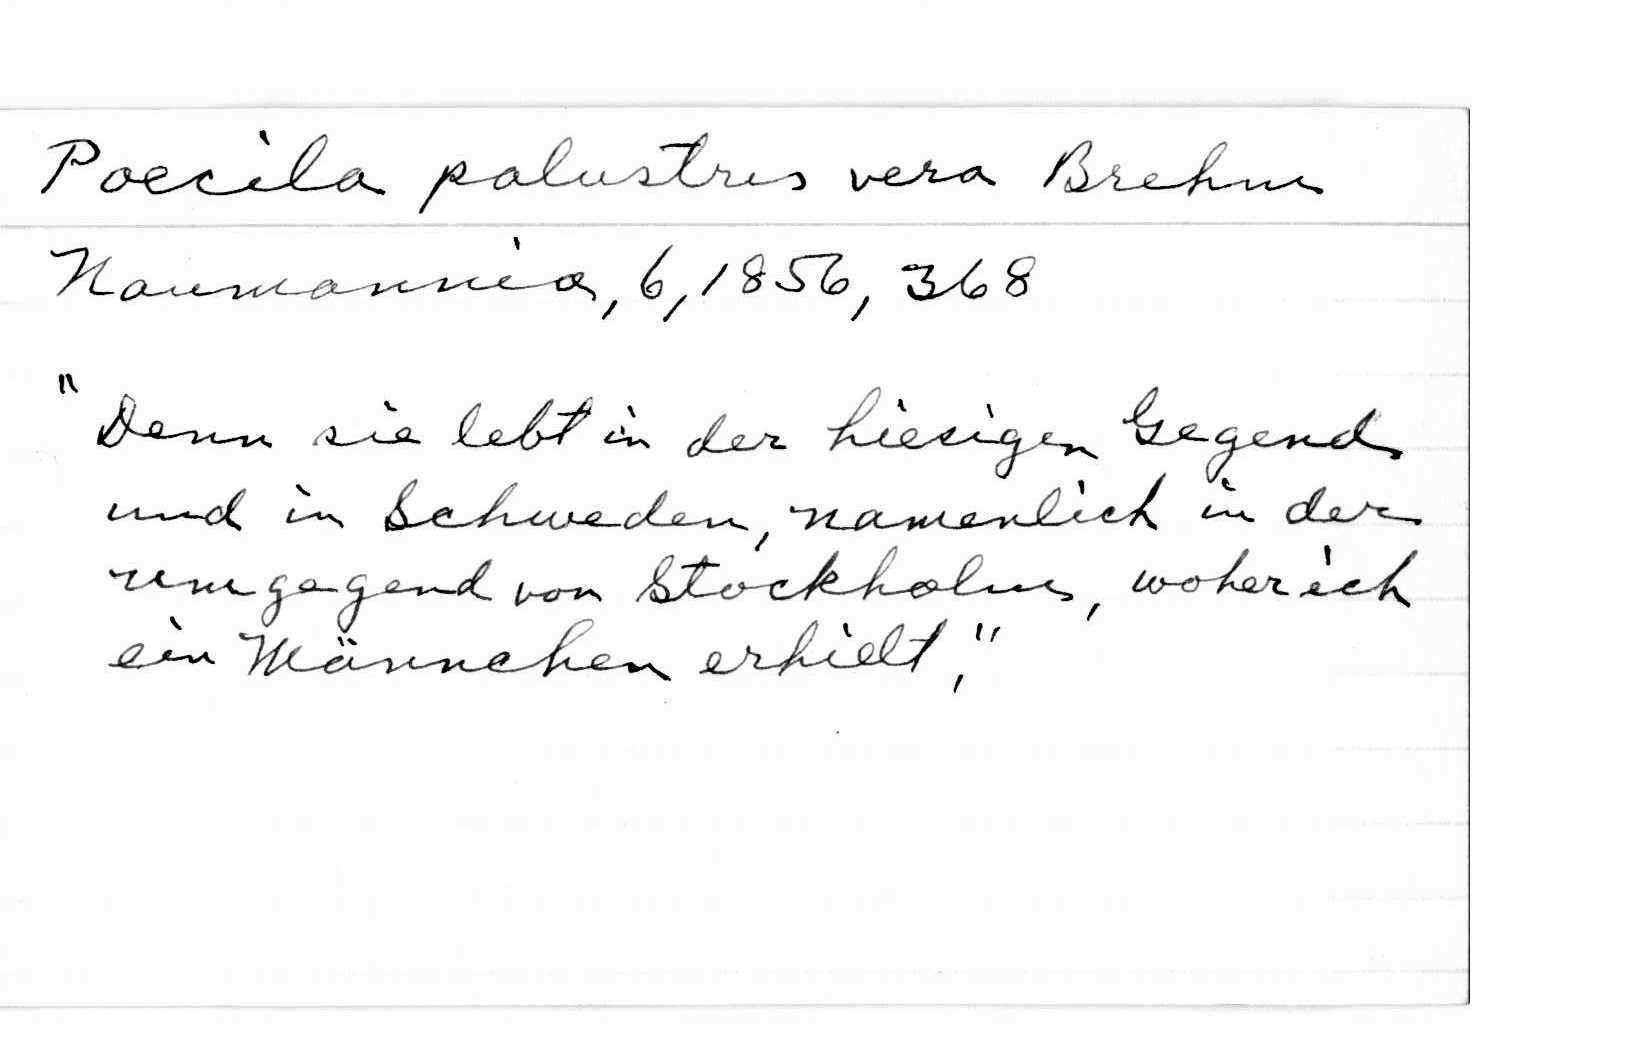 Poecila palustris vera Brehm
Naumannia, 6, 1856, 368
"Denn sie lebt in der hiesigen Gegend
und in Schweden, namenlich in der
umgegend von Stockholm, woher ich
ein Männchen erhielt,"